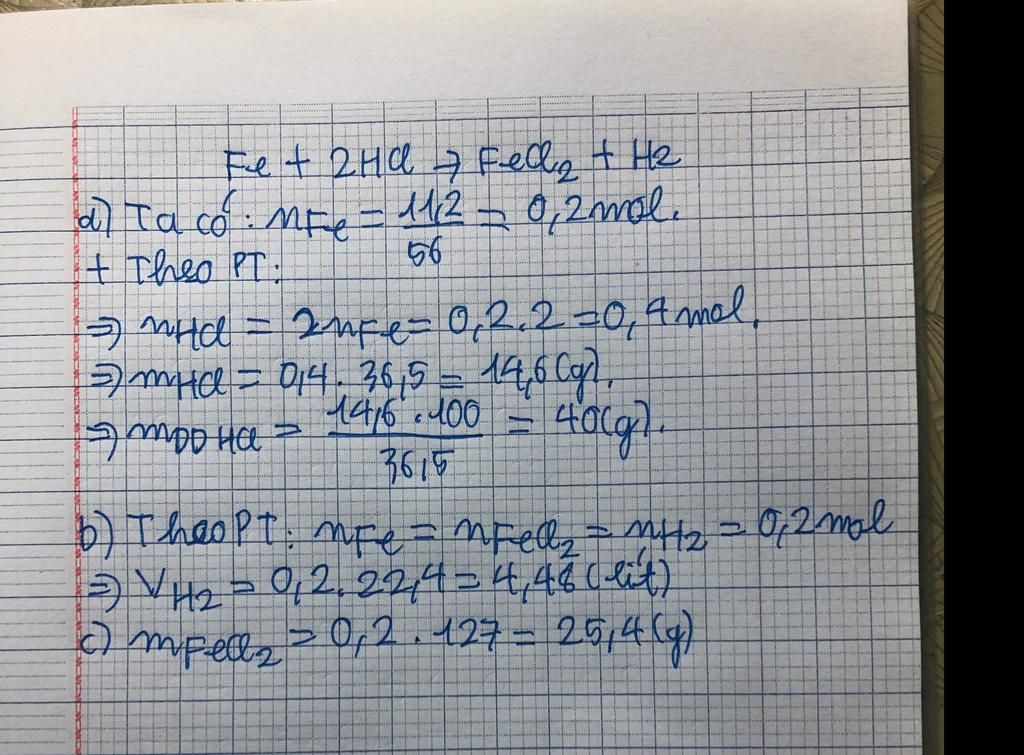 Fe + 2HCl → FeCl₂ + H₂
a) Ta có: nFe = 11,2/56 = 0,2 mol.
+ Theo PT:
⇒ nHCl = 2nFe = 0,2.2 = 0,4 mol.
⇒ mHCl = 0,4 . 36,5 = 14,6 (g).
⇒ mDD HCl = 14,6 . 100/36,5 = 40(g).
b) Theo PT: nFe = nFeCl₂ = nH₂ = 0,2 mol
⇒ VH₂ = 0,2.22,4 = 4,48 (lít)
c) mFeCl₂ = 0,2 . 127 = 25,4 (g)